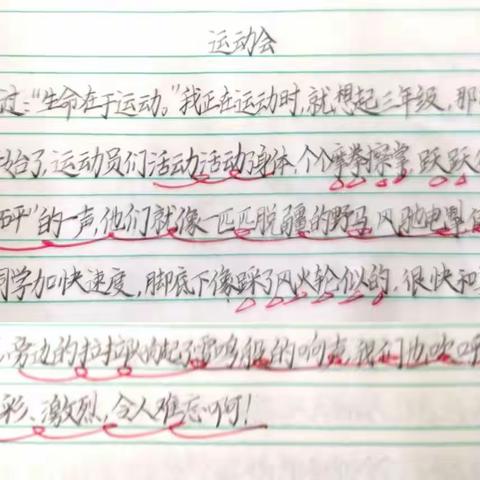 运动会
过:“生命在于运动。”我正在运动时,就想起三年级,那
始了,运动员们活动活动身体,个个摩拳擦掌,跃跃
砰”的一声,他们就像一匹匹脱疆的野马,风驰电掣
同学加快速度,脚底下像踩了风火轮似的,很快和
旁边的拉拉队响起了雷鸣般的响声,我们也欢呼
彩、激烈,令人难忘啊!